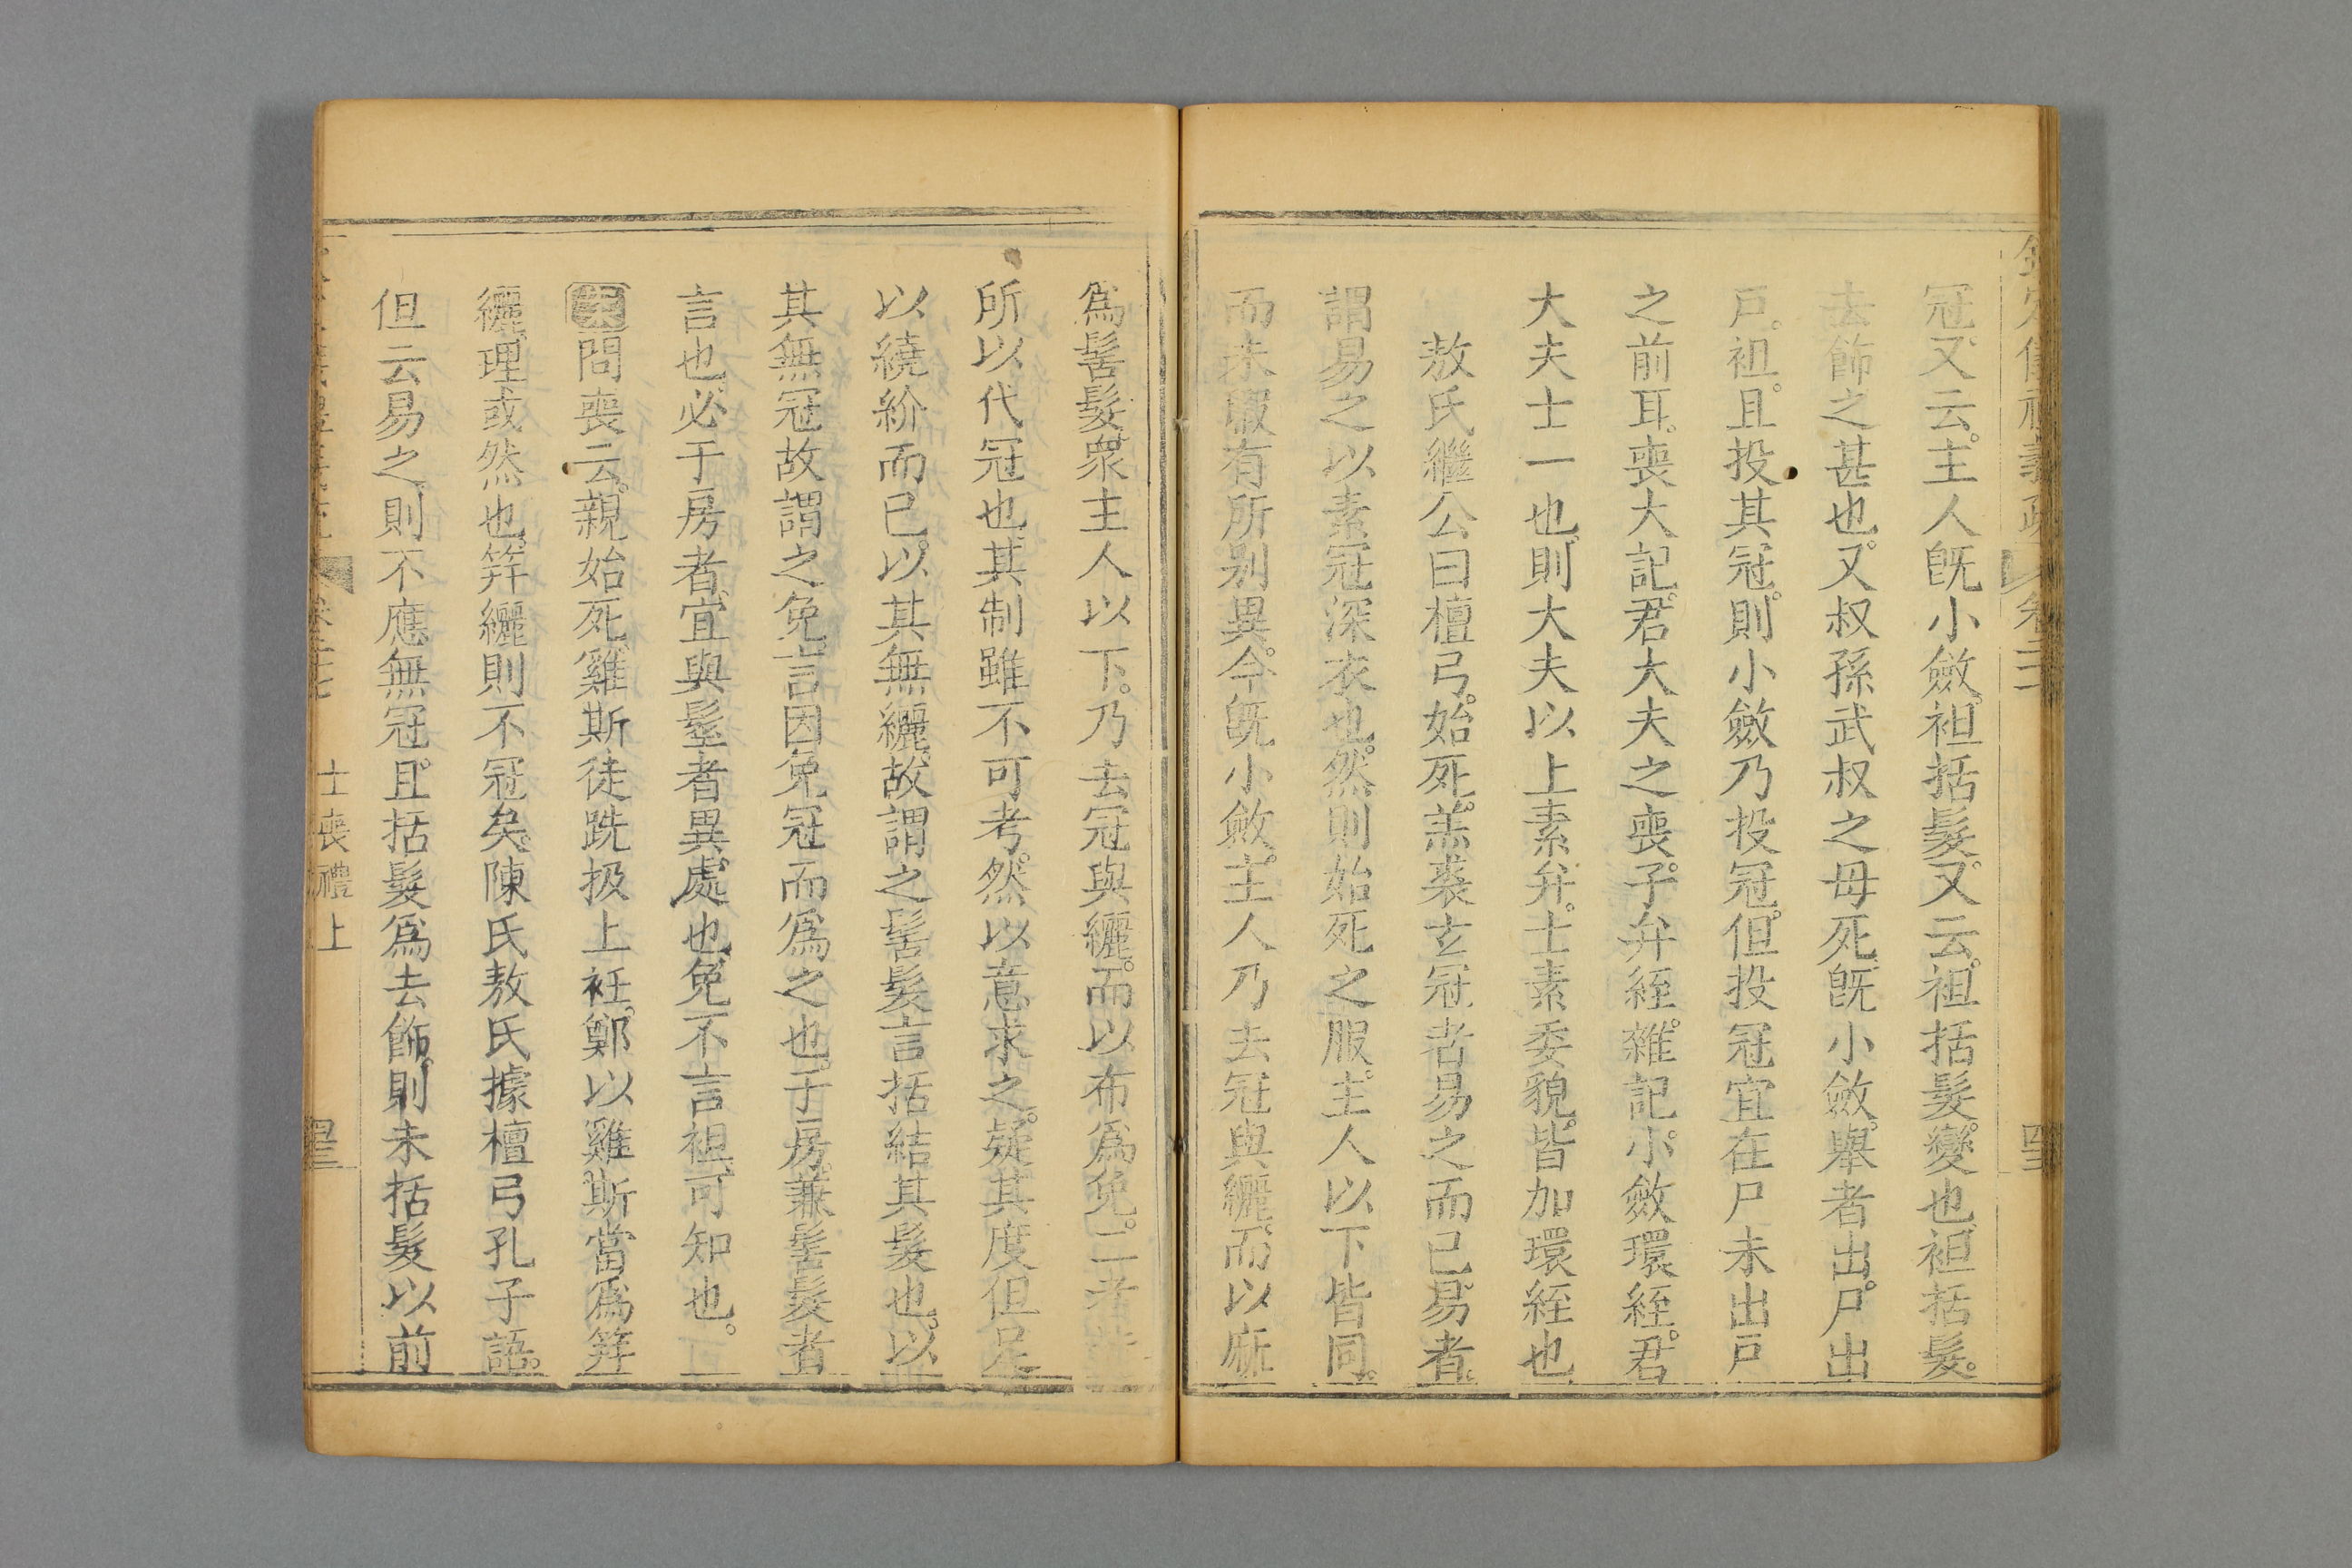 冠。又云。主人既小斂。袒括髮。又云。袒括髮。變也。袒括髮。
去飾之甚也。又叔孫武叔之母死。既小斂。舉者出。尸出
戶。袒。且投其冠。則小斂乃投冠。但投冠宜在尸未出戶
之前耳。喪大記。君大夫之喪。子弁絰。雜記。小斂環絰。君
大夫士一也。則大夫以上素弁。士素委貌。皆加環絰也
敖氏繼公曰檀弓。始死。羔裘玄冠者易之而已。易者。
謂易之以素冠深衣也。然則始死之服。主人以下皆同。
而未暇有所别異。今既小斂。主人乃去冠與纚。而以麻
為髺髮衆主人以下。乃去冠與纚。而以布為免。二者皆
所以代冠也。其制雖不可考。然以意求之。疑其度但足
以繞紒而已。以其無纚。故謂之髺髮言括結其髮也。以
其無冠故謂之免。言因免冠而為之也。于房。兼髺髮者
言也。必于房者。宜與髽者異處也。免不言袒。可知也。
案問喪云。親始死。雞斯徒跣扱上衽。鄭以雞斯當為笄
纚。理或然也。笄纚則不冠矣。陳氏敖氏據檀弓孔子語。
但云易之。則不應無冠。且括髮為去飾。則未括髮以前
士喪禮上